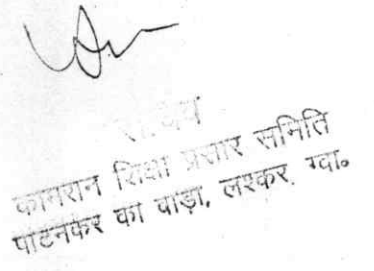 सचिव
कामरान शिक्षा प्रसार समिति
पाटनकर का वाड़ा, लश्कर ग्वा॰